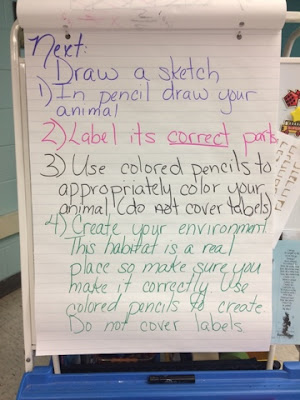 Next:
Draw a sketch
1) In pencil draw your
animal
2) Label its correct parts
3) Use colored pencils to
appropriately color your
animal (do not cover labels)
4) Create your environment
This habitat is a real
place so make sure you
make it correctly Use
colored pencils to create.
Do not cover labels